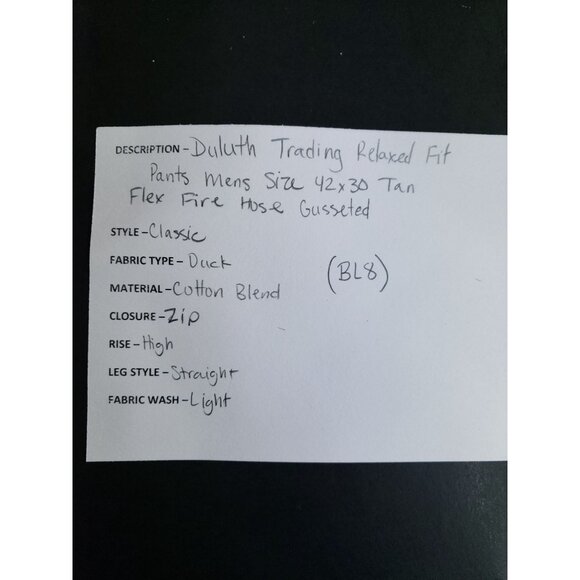 DESCRIPTION - Duluth Trading Relaxed Fit
Pants Mens Size 42x30 Tan
Flex Fire Hose Gusseted
STYLE - Classic
FABRIC TYPE - Duck
(BL8)
MATERIAL - Cotton Blend
CLOSURE - Zip
RISE - High
LEG STYLE - Straight
FABRIC WASH - Light